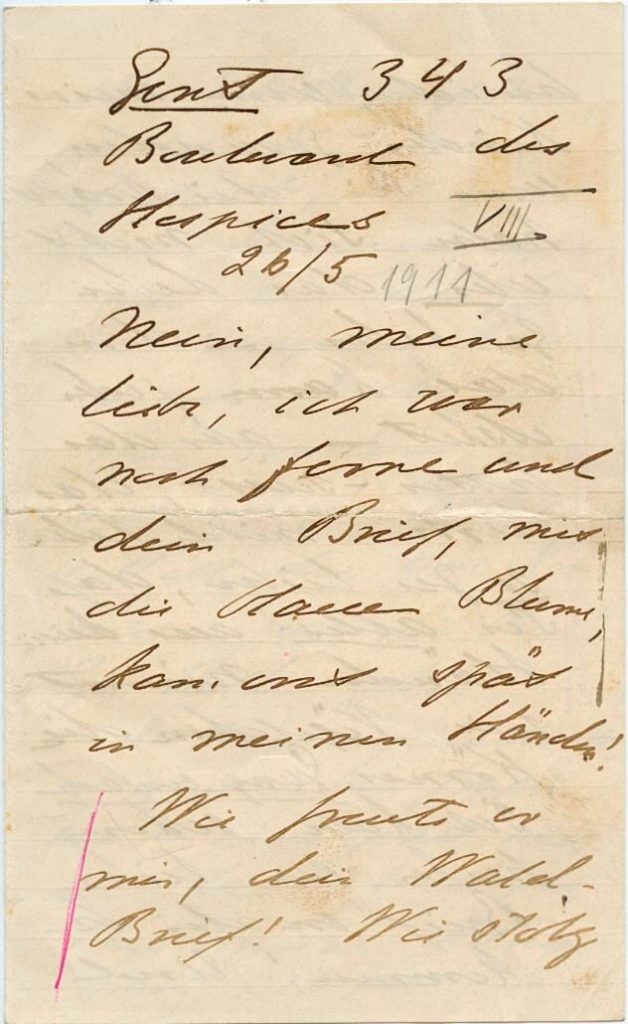 Gent 343
Boulevard des
Hospices VIII
26/5 1911
Nein, meine
liebe, ich war
noch ferne und
dein Brief, mit
die blauen Blume,
kam erst spät
in meinen Händen!
Wie freute er
mir, dein Wald-
Brief! Wie stolz